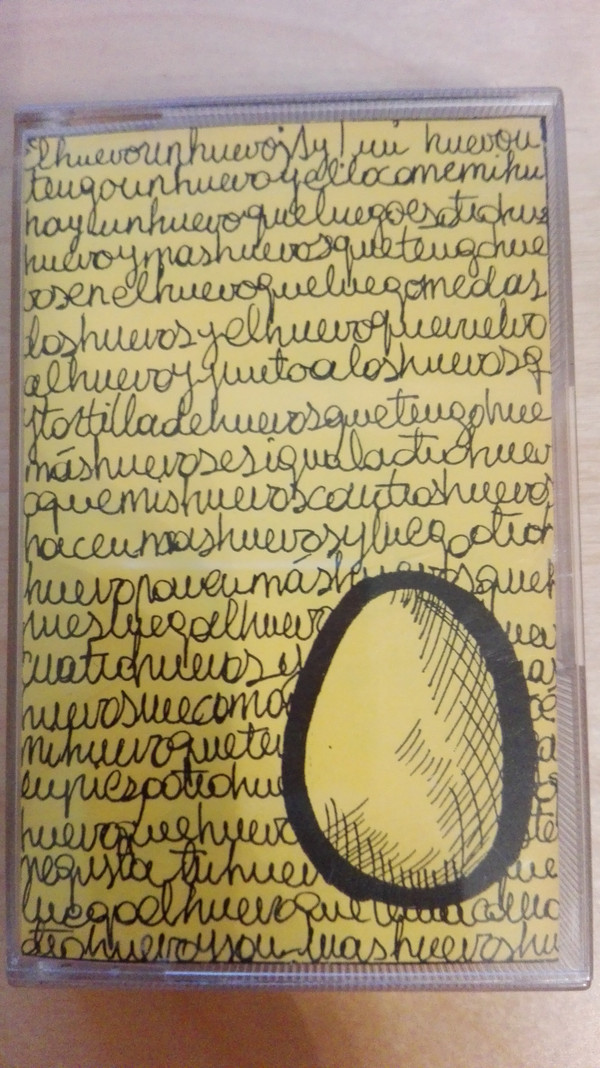 elhuevounhuevojsy! mi huevou
tengounhuevoyellocomemihu
hayunhuevoqueluegoesotrohue
huevoymashuevosquetengohue
vosenelhuevoqueluegomedas
loshuevosyelhuevoquevuelvo
alhuevoyjuntoaloshuevosq
ytortilladehuevosquetengohue
máshuevosesigualaotrohuev
oquemishuevosconotroshuevos
hacenmashuevosyluegootroh
huevoponenmáshuevosqueh
pues luegoelhuevo
cuatrohuevosy
huevosmecomo
mihuevoqueten
otrohue
huevoquehuevo
megusta tuhuev
luegoelhuevoque
otrohuevoyson mashuevoshu